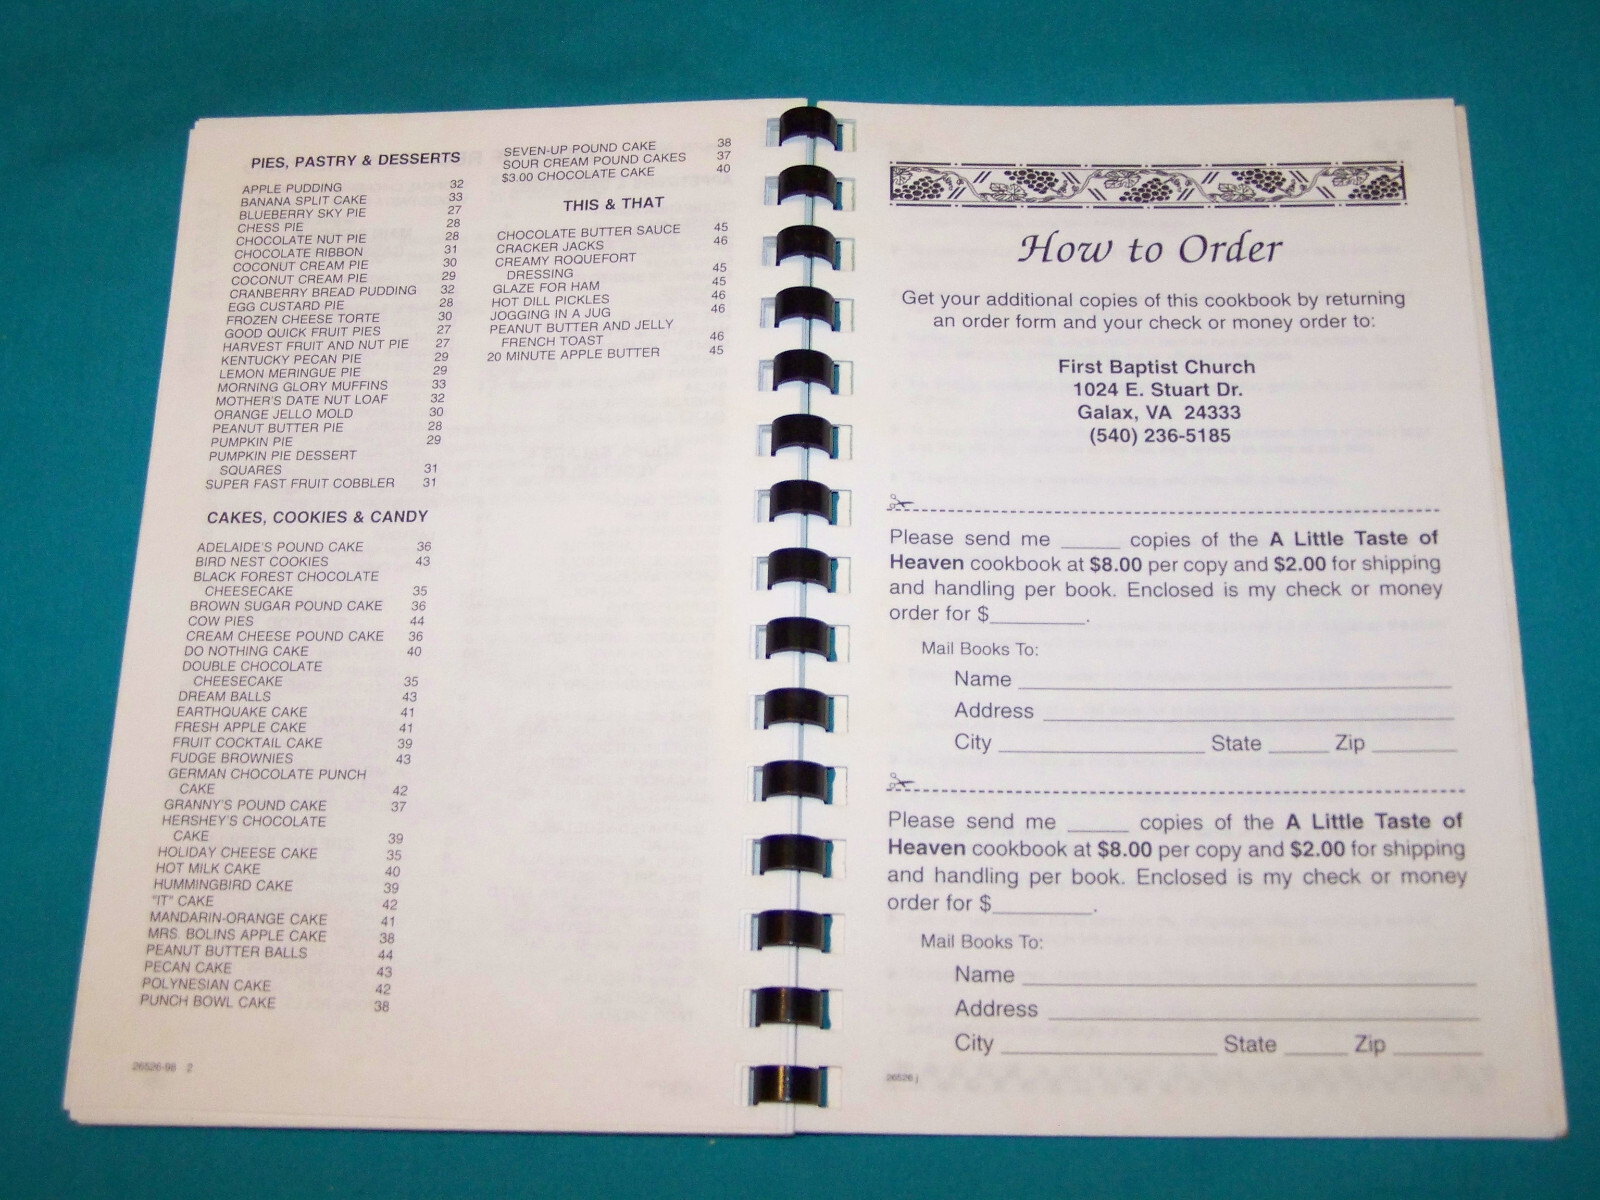 PIES, PASTRY & DESSERTS
APPLE PUDDING 32
BANANA SPLIT CAKE 33
BLUEBERRY SKY PIE 27
CHESS PIE 28
CHOCOLATE NUT PIE 28
CHOCOLATE RIBBON 31
COCONUT CREAM PIE 30
COCONUT CREAM PIE 29
CRANBERRY BREAD PUDDING 32
EGG CUSTARD PIE 28
FROZEN CHEESE TORTE 30
GOOD QUICK FRUIT PIES 27
HARVEST FRUIT AND NUT PIE 27
KENTUCKY PECAN PIE 29
LEMON MERINGUE PIE 29
MORNING GLORY MUFFINS 33
MOTHER'S DATE NUT LOAF 32
ORANGE JELLO MOLD 30
PEANUT BUTTER PIE 28
PUMPKIN PIE 29
PUMPKIN PIE DESSERT
SQUARES 31
SUPER FAST FRUIT COBBLER 31
CAKES, COOKIES & CANDY
ADELAIDE'S POUND CAKE 36
BIRD NEST COOKIES 43
BLACK FOREST CHOCOLATE
CHEESECAKE 35
BROWN SUGAR POUND CAKE 36
COW PIES 44
CREAM CHEESE POUND CAKE 36
DO NOTHING CAKE 40
DOUBLE CHOCOLATE
CHEESECAKE 35
DREAM BALLS 43
EARTHQUAKE CAKE 41
FRESH APPLE CAKE 41
FRUIT COCKTAIL CAKE 39
FUDGE BROWNIES 43
GERMAN CHOCOLATE PUNCH
CAKE 42
GRANNY'S POUND CAKE 37
HERSHEY'S CHOCOLATE
CAKE 39
HOLIDAY CHEESE CAKE 35
HOT MILK CAKE 40
HUMMINGBIRD CAKE 39
"IT" CAKE 42
MANDARIN-ORANGE CAKE 41
MRS. BOLINS APPLE CAKE 38
PEANUT BUTTER BALLS 44
PECAN CAKE 43
POLYNESIAN CAKE 42
PUNCH BOWL CAKE 38
SEVEN-UP POUND CAKE 38
SOUR CREAM POUND CAKES 37
$3.00 CHOCOLATE CAKE 40
THIS & THAT
CHOCOLATE BUTTER SAUCE 45
CRACKER JACKS 46
CREAMY ROQUEFORT
DRESSING 45
GLAZE FOR HAM 45
HOT DILL PICKLES 46
JOGGING IN A JUG 46
PEANUT BUTTER AND JELLY
FRENCH TOAST 46
20 MINUTE APPLE BUTTER 45
26526-98 2
How to Order
Get your additional copies of this cookbook by returning
an order form and your check or money order to:
First Baptist Church
1024 E. Stuart Dr.
Galax, VA 24333
(540) 236-5185
Please send me ______ copies of the A Little Taste of
Heaven cookbook at $8.00 per copy and $2.00 for shipping
and handling per book. Enclosed is my check or money
order for $__________.
Mail Books To:
Name
Address
City State Zip
Please send me ______ copies of the A Little Taste of
Heaven cookbook at $8.00 per copy and $2.00 for shipping
and handling per book. Enclosed is my check or money
order for $__________.
Mail Books To:
Name
Address
City State Zip
26526 j